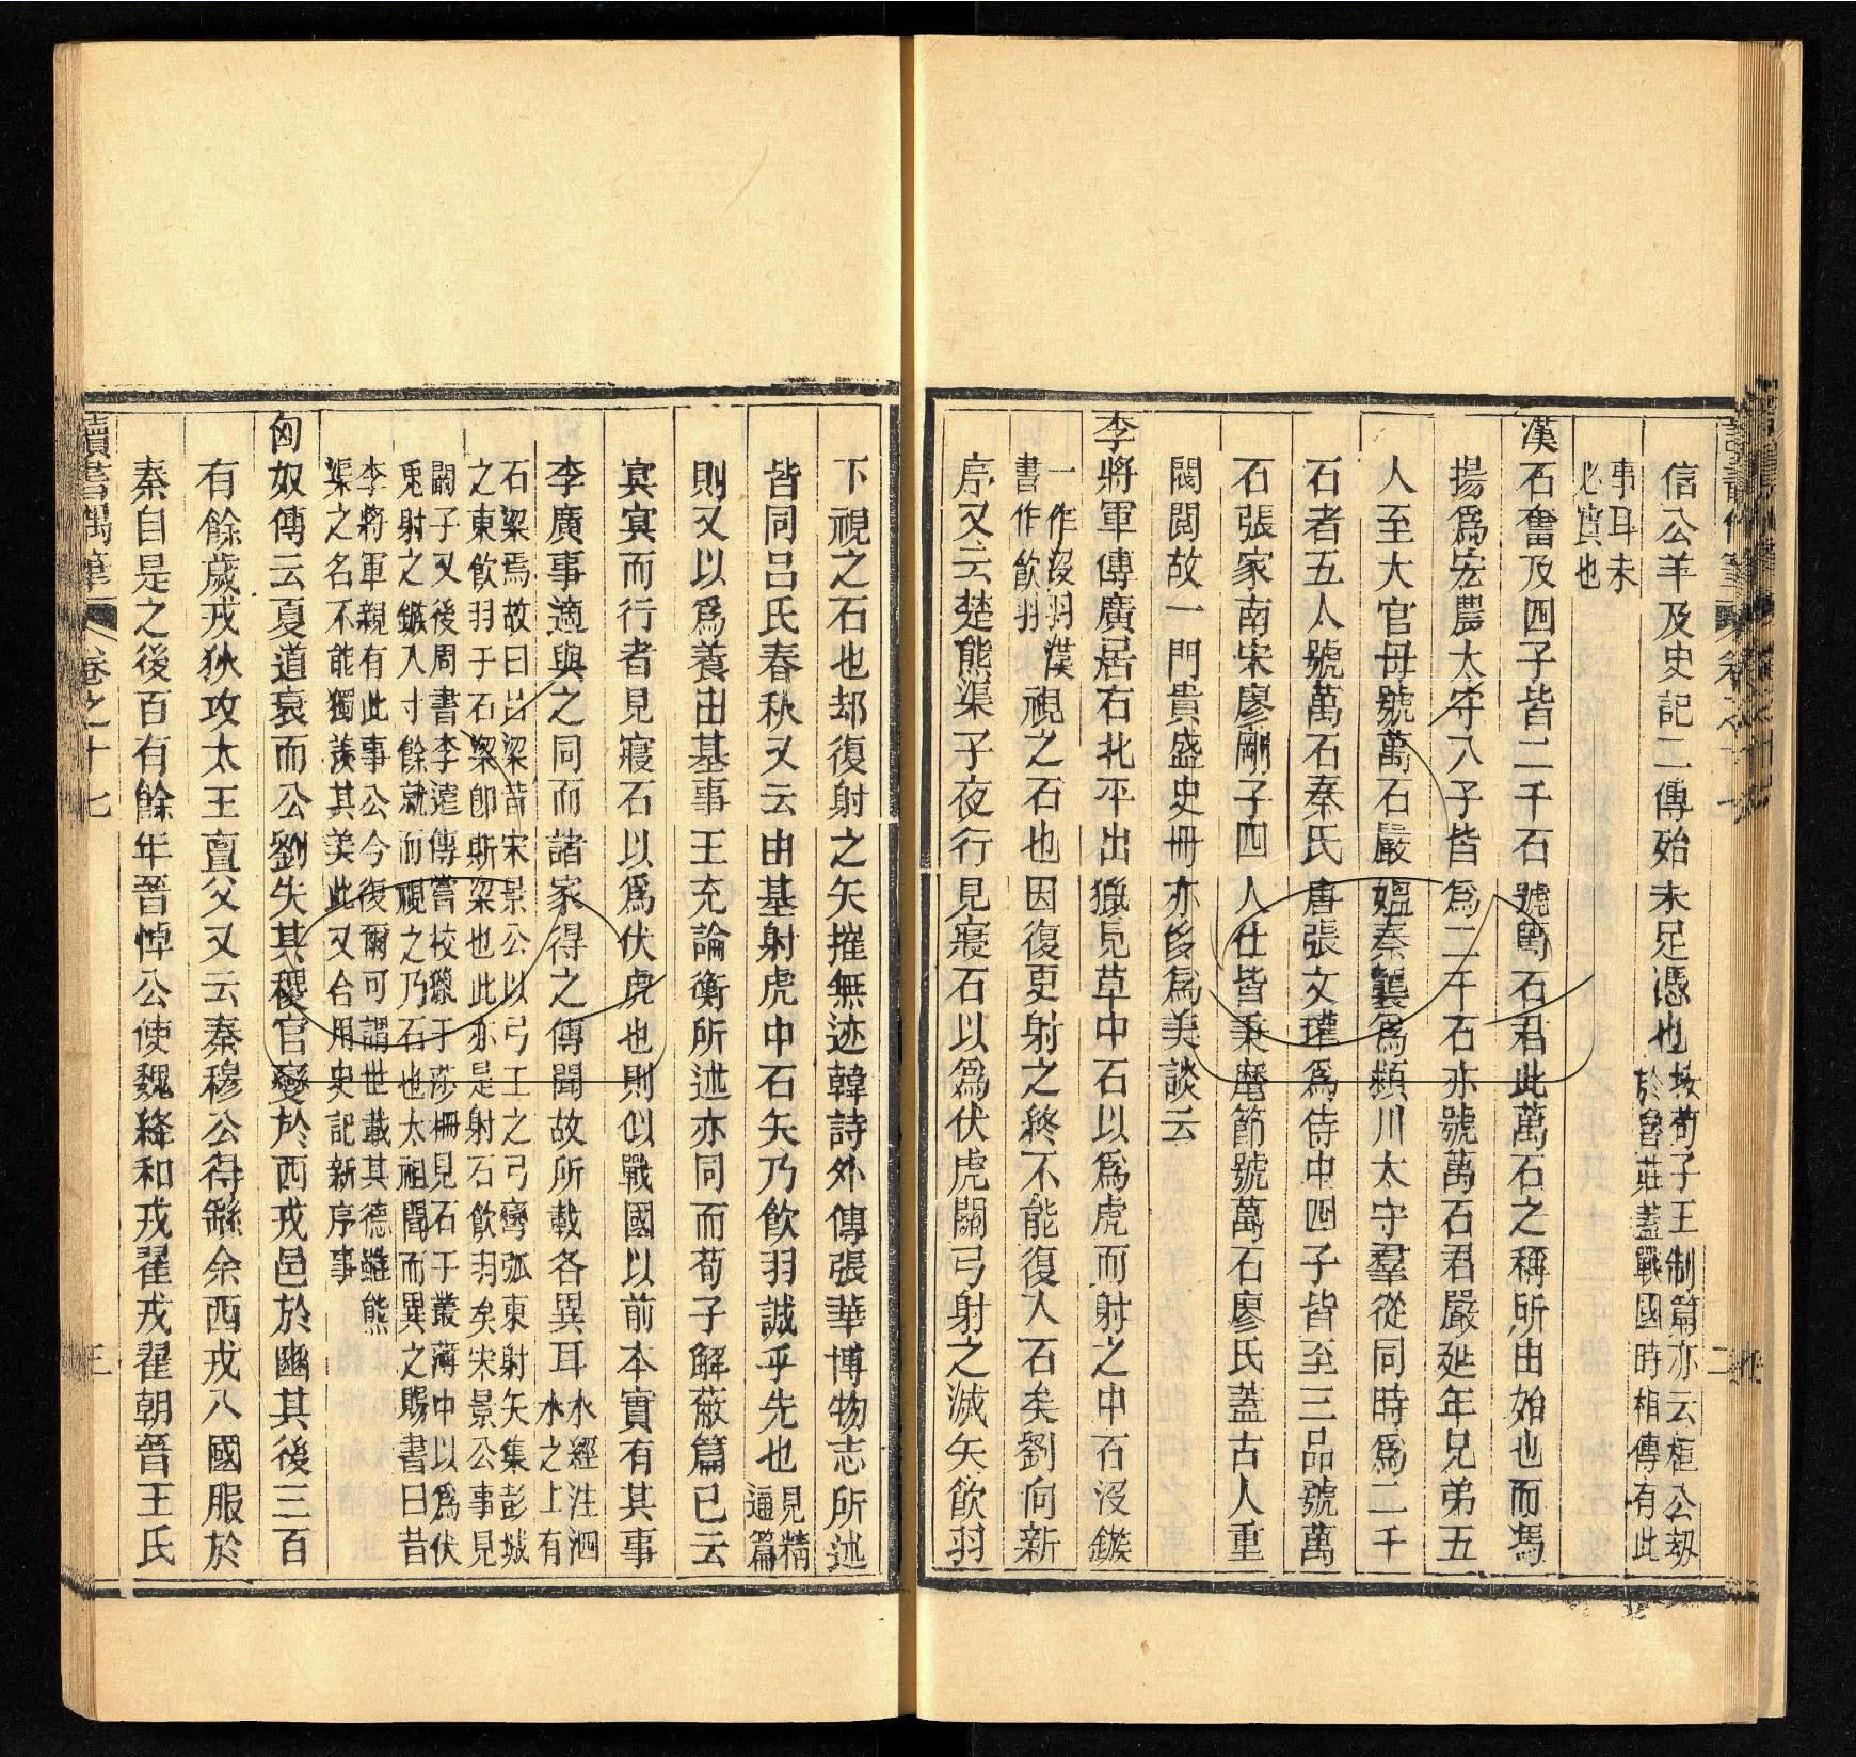 信公羊及史記二傳殆未足憑也按荀子王制篇亦云桓公刼於魯莊蓋戰國時相傳有此
事耳未必實也
漢石奮及四子皆二千石號萬石君此萬石之稱所由始也而馮
揚爲宏農太守八子皆爲二千石亦號萬石君嚴延年兄弟五
人至大官母號萬石嚴嫗秦襲爲潁川太守羣從同時爲二千
石者五人號萬石秦氏唐張文瓘爲侍中四子皆至三品號萬
石張家南宋廖剛子四人仕皆秉麾節號萬石廖氏蓋古人重
閥閱故一門貴盛史冊亦侈爲美談云
李將軍傳廣居右北平出獵見草中石以爲虎而射之中石沒鏃
一作沒羽漢書作飲羽視之石也因復更射之終不能復入石矣劉向新
序又云楚熊渠子夜行見寢石以爲伏虎關弓射之滅矢飲羽
下視之石也却復射之矢摧無迹韓詩外傳張華博物志所述
皆同呂氏春秋又云由基射虎中石矢乃飲羽誠乎先也見精通篇
則又以爲養由基事王充論衡所述亦同而荀子解蔽篇已云
冥冥而行者見寢石以爲伏虎也則似戰國以前本實有其事
李廣事適與之同而諸家得之傳聞故所載各異耳水經注泗水之上有
石梁焉故曰呂梁昔宋景公以弓工之弓彎弧東射矢集彭城之東飲羽于石梁卽斯梁也此亦是射石飲羽矣宋景公事見
闞子又後周書李遠傳嘗校獵于莎柵見石于叢薄中以爲伏兎射之鏃入寸餘就而視之乃石也太祖聞而異之賜書曰昔
李將軍親有此事公今復爾可謂世載其德雖熊渠之名不能獨羨其美此又合用史記新序事
匈奴傳云夏道衰而公劉失其稷官變於西戎邑於豳其後三百
有餘歲戎狄攻太王亶父又云秦穆公得繇余西戎八國服於
秦自是之後百有餘年晉悼公使魏絳和戎翟戎翟朝晉王氏
讀書偶筆 卷之十七 三